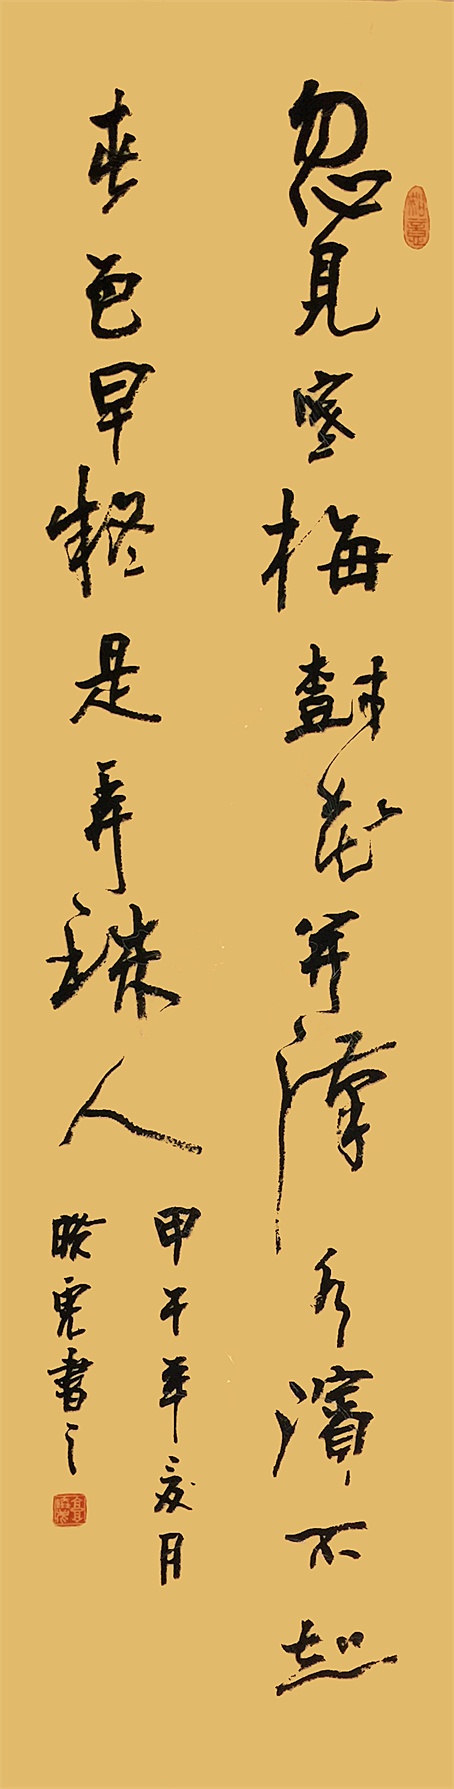 忽見寒梅樹花開漢水濱不知
春色早疑是弄珠人
甲午年夏月
書之